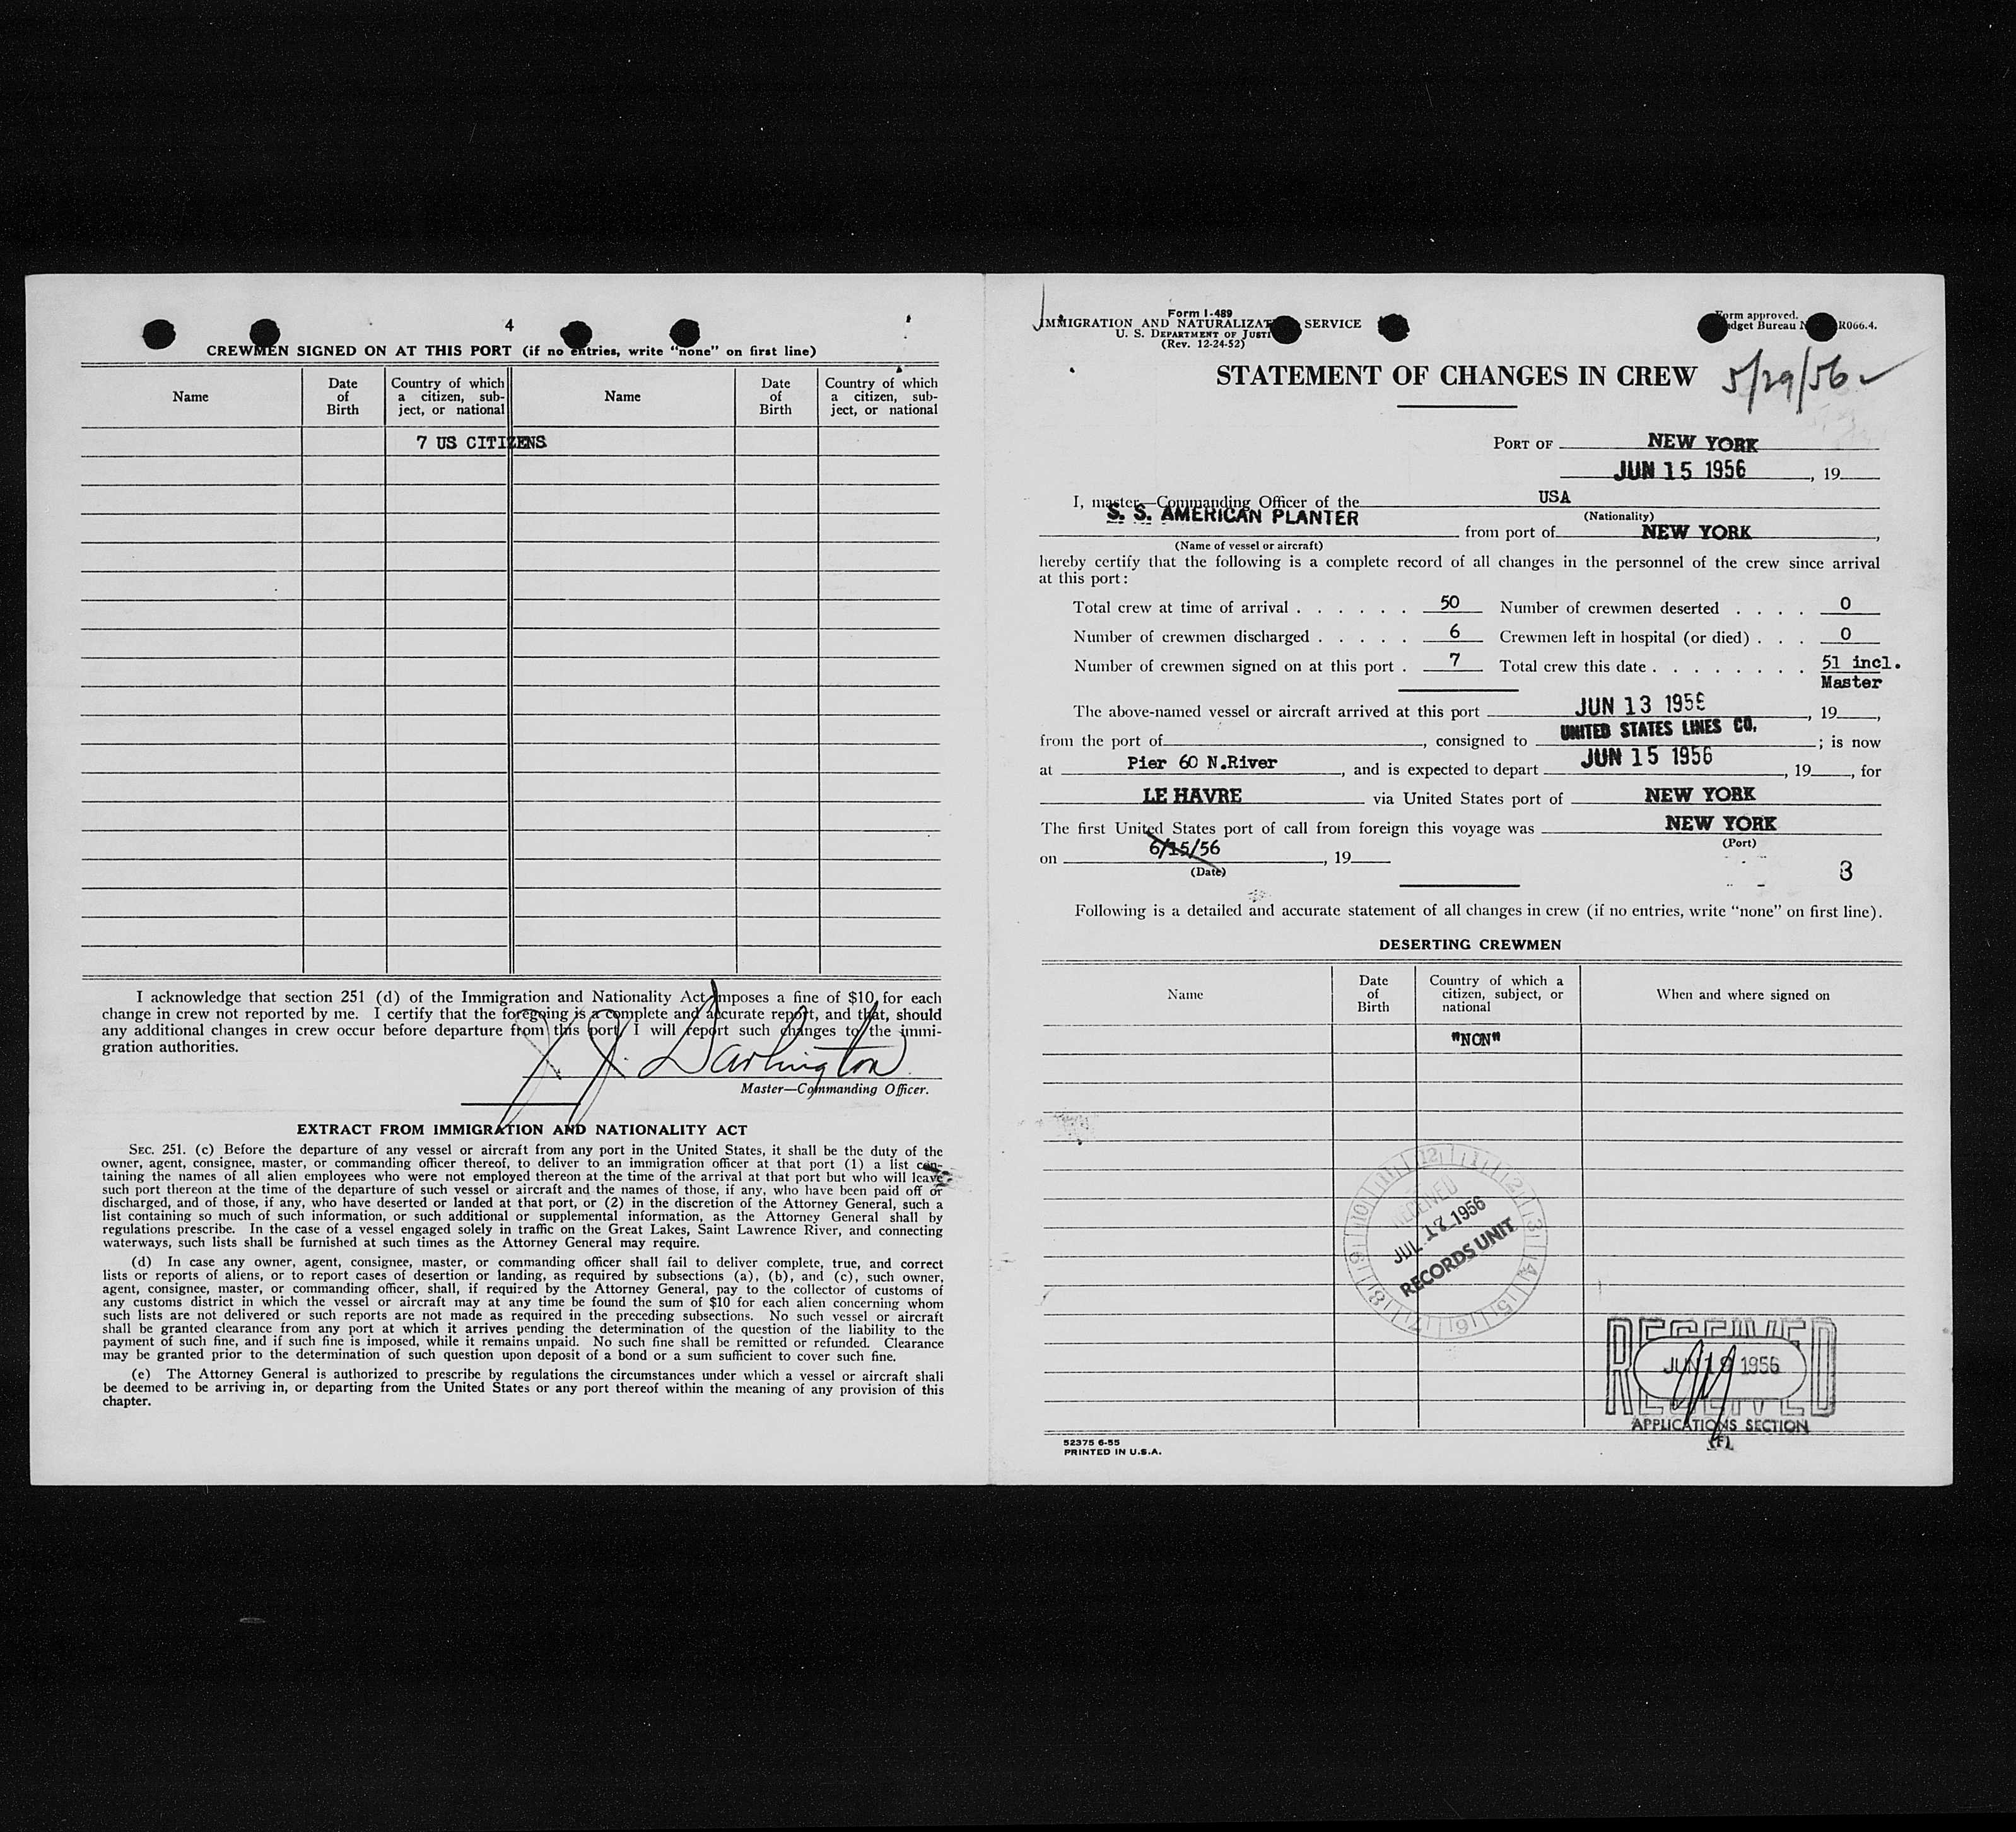 4
CREWMEN SIGNED ON AT THIS PORT (if no entries, write "none" on first line)
Name Date of Birth Country of which a citizen, subject, or national Name Date of Birth Country of which a citizen, subject, or national
7 US CITIZENS
I acknowledge that section 251 (d) of the Immigration and Nationality Act imposes a fine of $10 for each
change in crew not reported by me. I certify that the foregoing is a complete and accurate report, and that, should
any additional changes in crew occur before departure from this port, I will report such changes to the immi-
gration authorities.
J. Darlington
Master—Commanding Officer.
EXTRACT FROM IMMIGRATION AND NATIONALITY ACT
SEC. 251. (c) Before the departure of any vessel or aircraft from any port in the United States, it shall be the duty of the
owner, agent, consignee, master, or commanding officer thereof, to deliver to an immigration officer at that port (1) a list con-
taining the names of all alien employees who were not employed thereon at the time of the arrival at that port but who will leave
such port thereon at the time of the departure of such vessel or aircraft and the names of those, if any, who have been paid off or
discharged, and of those, if any, who have deserted or landed at that port, or (2) in the discretion of the Attorney General, such a
list containing so much of such information, or such additional or supplemental information, as the Attorney General shall by
regulations prescribe. In the case of a vessel engaged solely in traffic on the Great Lakes, Saint Lawrence River, and connecting
waterways, such lists shall be furnished at such times as the Attorney General may require.
(d) In case any owner, agent, consignee, master, or commanding officer shall fail to deliver complete, true, and correct
lists or reports of aliens, or to report cases of desertion or landing, as required by subsections (a), (b), and (c), such owner,
agent, consignee, master, or commanding officer, shall, if required by the Attorney General, pay to the collector of customs of
any customs district in which the vessel or aircraft may at any time be found the sum of $10 for each alien concerning whom
such lists are not delivered or such reports are not made as required in the preceding subsections. No such vessel or aircraft
shall be granted clearance from any port at which it arrives pending the determination of the question of the liability to the
payment of such fine, and if such fine is imposed, while it remains unpaid. No such fine shall be remitted or refunded. Clearance
may be granted prior to the determination of such question upon deposit of a bond or a sum sufficient to cover such fine.
(e) The Attorney General is authorized to prescribe by regulations the circumstances under which a vessel or aircraft shall
be deemed to be arriving in, or departing from the United States or any port thereof within the meaning of any provision of this
chapter.
Form I-489
IMMIGRATION AND NATURALIZAT SERVICE
U. S. DEPARTMENT OF JUSTI
(Rev. 12-24-52)
Form approved.
dget Bureau N R066.4.
STATEMENT OF CHANGES IN CREW
5/29/56
PORT OF NEW YORK
JUN 15 1956, 19
I, master—Commanding Officer of the USA
(Nationality)
S. S. AMERICAN PLANTER from port of NEW YORK,
(Name of vessel or aircraft)
hereby certify that the following is a complete record of all changes in the personnel of the crew since arrival
at this port:
Total crew at time of arrival . . . . . . 50 Number of crewmen deserted . . . . 0
Number of crewmen discharged . . . . . 6 Crewmen left in hospital (or died) . . . 0
Number of crewmen signed on at this port . 7 Total crew this date . . . . . . . . 51 incl.
Master
The above-named vessel or aircraft arrived at this port JUN 13 1956, 19,
from the port of , consigned to UNITED STATES LINES CO. ; is now
at Pier 60 N.River, and is expected to depart JUN 15 1956, 19, for
LE HAVRE via United States port of NEW YORK
The first United States port of call from foreign this voyage was NEW YORK
(Port)
on 6/15/56, 19
(Date)
3
Following is a detailed and accurate statement of all changes in crew (if no entries, write "none" on first line).
DESERTING CREWMEN
Name Date of Birth Country of which a citizen, subject, or national When and where signed on
"NON"
12 1 2 3 4 5 6 7 8 9 10 11
RECEIVED
JUL 17 1956
RECORDS UNIT
RECEIVED
JUN 19 1956
RECEIVED
APPLICATIONS SECTION
(F)
52375 6-55
PRINTED IN U.S.A.